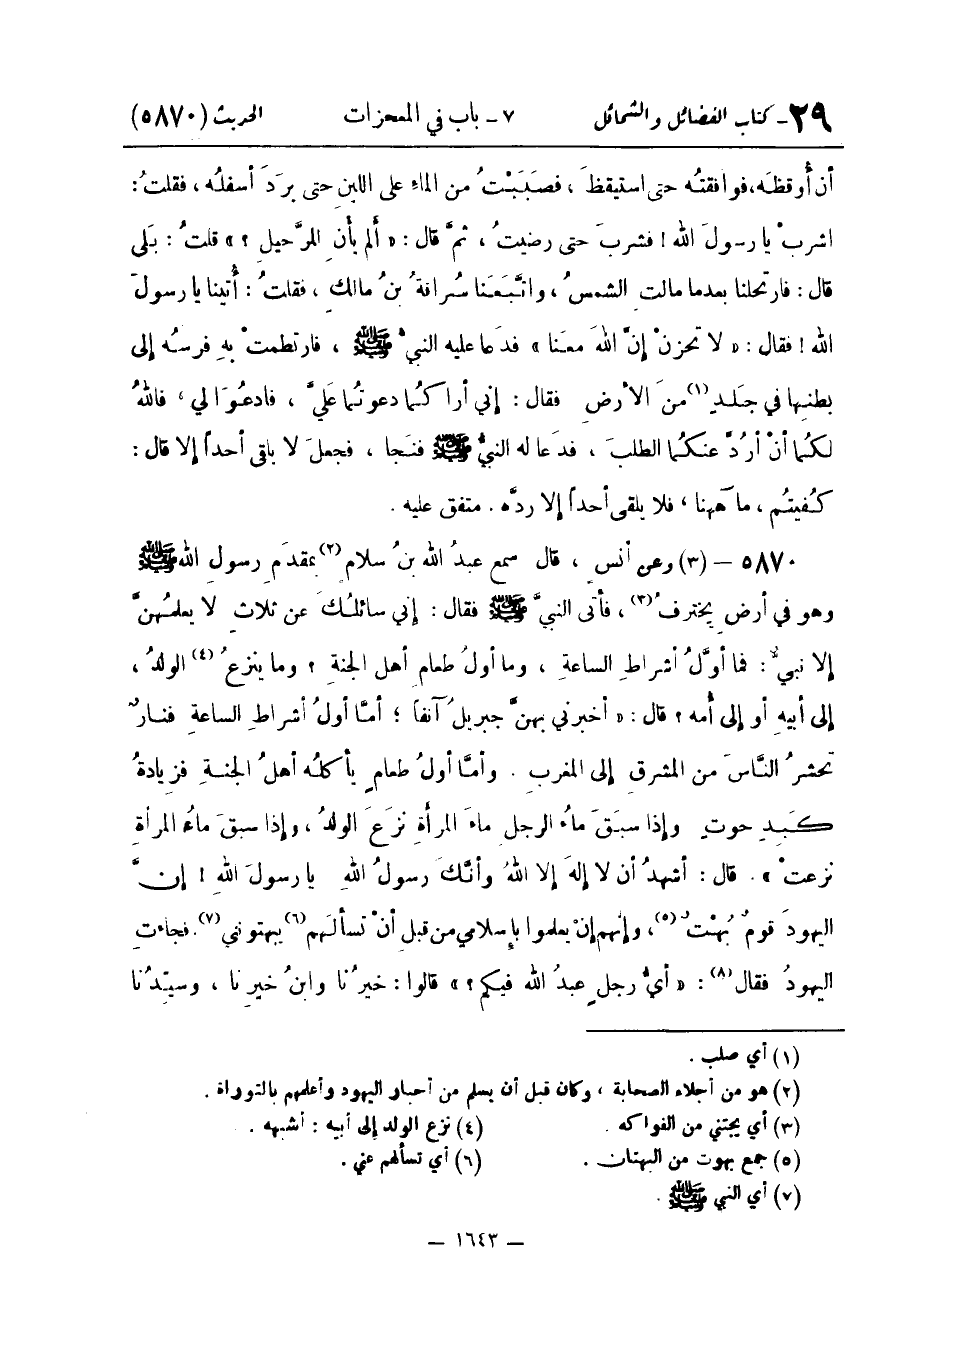 ٢٩- كتاب الفضائل والشمائل ٧- باب في المعجزات الحديث (٥٨٧٠)
أن أُوقظَه، فوافقتُه حتى استيقظَ ، فصَبَبَنْتُ من الماءِ على اللبنِ حتى بردَ أسفلُه ، فقلتُ :
اشربْ يا رسولَ الله ! فشربَ حتى رضيتُ ، ثمَّ قال : « ألم يأنِ للرَّحيل ؟ » قلتُ : بَلى
قال : فارتحلنا بعدما مالتِ الشمسُ ، واتَّبَعَنا سُراقةُ بنُ مالكٍ ، فقلتُ : أُتينا يا رسولَ
الله ! فقال : « لا تحزنْ إنَّ اللهَ معَنا » فدَعا عليه النبيُّ ﷺ ، فارتطمتْ بهِ فرسُه إلى
بطنِها في جَلَدٍ (١) منَ الأرضِ فقال : إني أراكُما دعوتُما عَليَّ ، فادعُوَا لي ، فاللهُ
لكُما أنْ أردَّ عنكُما الطلبَ ، فدَعا له النبيُّ ﷺ فنَجا ، فجعلَ لا يلقى أحداً إلا قال :
كُفيتُم ، ما ههنا ، فلا يلقى أحداً إلا ردَّه . متفق عليه .
٥٨٧٠ – (٣) وعن أنسٍ ، قال سمع عبدُ الله بنُ سلامٍ (٢) بمقدَمِ رسولِ الله ﷺ
وهو في أرضٍ يخترفُ (٣) ، فأتى النبيَّ ﷺ فقال : إني سائلُكَ عن ثلاثٍ لا يعلمُهنَّ
إلا نبيٌّ : فما أوَّلُ أشراطِ الساعةِ ، وما أولُ طعامِ أهل الجنةِ ؟ وما ينزعُ (٤) الولدُ ،
إلى أبيهِ أو إلى أُمه ؟ قال : « أخبرني بهنَّ جبريلُ آنفاً ؛ أمَّا أولُ أشراطِ الساعةِ فنارٌ
تحشرُ النَّاسَ من المشرقِ إلى المغربِ . وأمَّا أولُ طعامٍ يأكلُه أهلُ الجنةِ فزيادةُ
كَبِدِ حوتٍ وإذا سبَقَ ماءُ الرجلِ ماءَ المرأةِ نزَعَ الولدُ ، وإذا سبقَ ماءُ المرأةِ
نزعتْ » . قال : أشهدُ أن لا إلهَ إلا اللهُ وأنَّكَ رسولُ اللهِ يا رسولَ اللهِ ! إنَّ
اليهودَ قومٌ بُهْتٌ (٥) ، وإنهم إنْ يعلموا بإسلامي من قبلِ أنْ تسألَهم (٦) يبهتونني (٧) . فجاءتِ
اليهودُ فقال (٨) : « أيُّ رجلٍ عبدُ الله فيكم ؟ » قالوا : خيرُنا وابنُ خيرِنا ، وسيّدُنا
(١) أي صلب .
(٢) هو من أجلاء الصحابة ، وكان قبل أن يسلم من أحبار اليهود وأعلمهم بالتوراة .
(٣) أي يجتني من الفواكه . (٤) نزع الولد إلى أبيه : أشبهه .
(٥) جمع بهوت من البهتان . (٦) أي تسألهم عني .
(٧) أي النبي ﷺ .
– ١٦٤٣ –